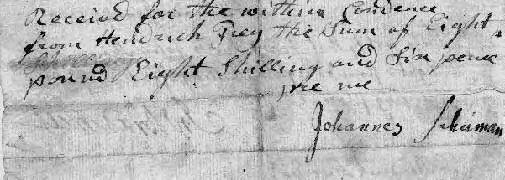 Received for the within Condence
from Hendrick Frey the Sum of Eight
pound Eight Shilling and Six pence
pre me
Johannes Schuman